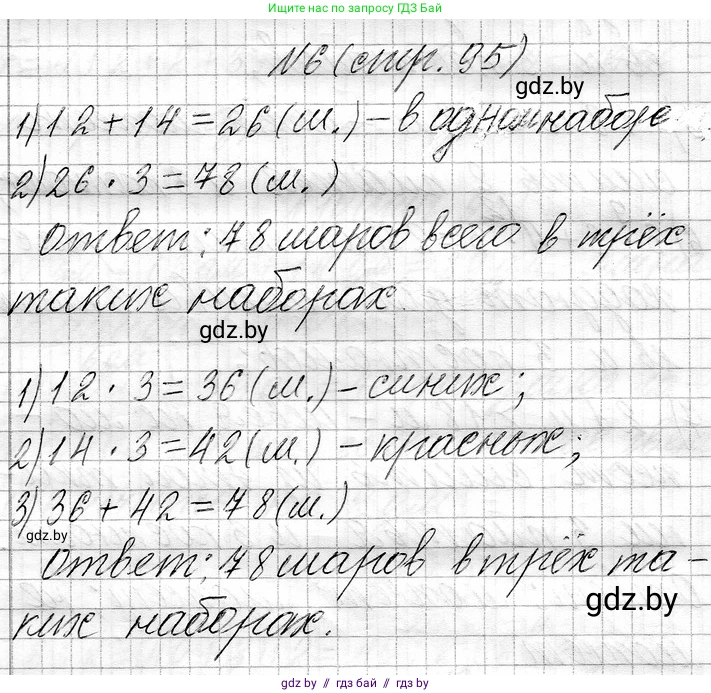 Ищите нас по запросу ГДЗ Бай
№6 (стр. 95)
gdz.by
1) 12 + 14 = 26 (ш.) – в одном наборе
2) 26 · 3 = 78 (ш.)
Ответ: 78 шаров всего в трёх
таких наборах.
gdz.by
1) 12 · 3 = 36 (ш.) – синих;
2) 14 · 3 = 42 (ш.) – красных;
3) 36 + 42 = 78 (ш.)
gdz.by
Ответ: 78 шаров в трёх та-
gdz.by
ких наборах.
gdz.by // гдз бай // гдз by